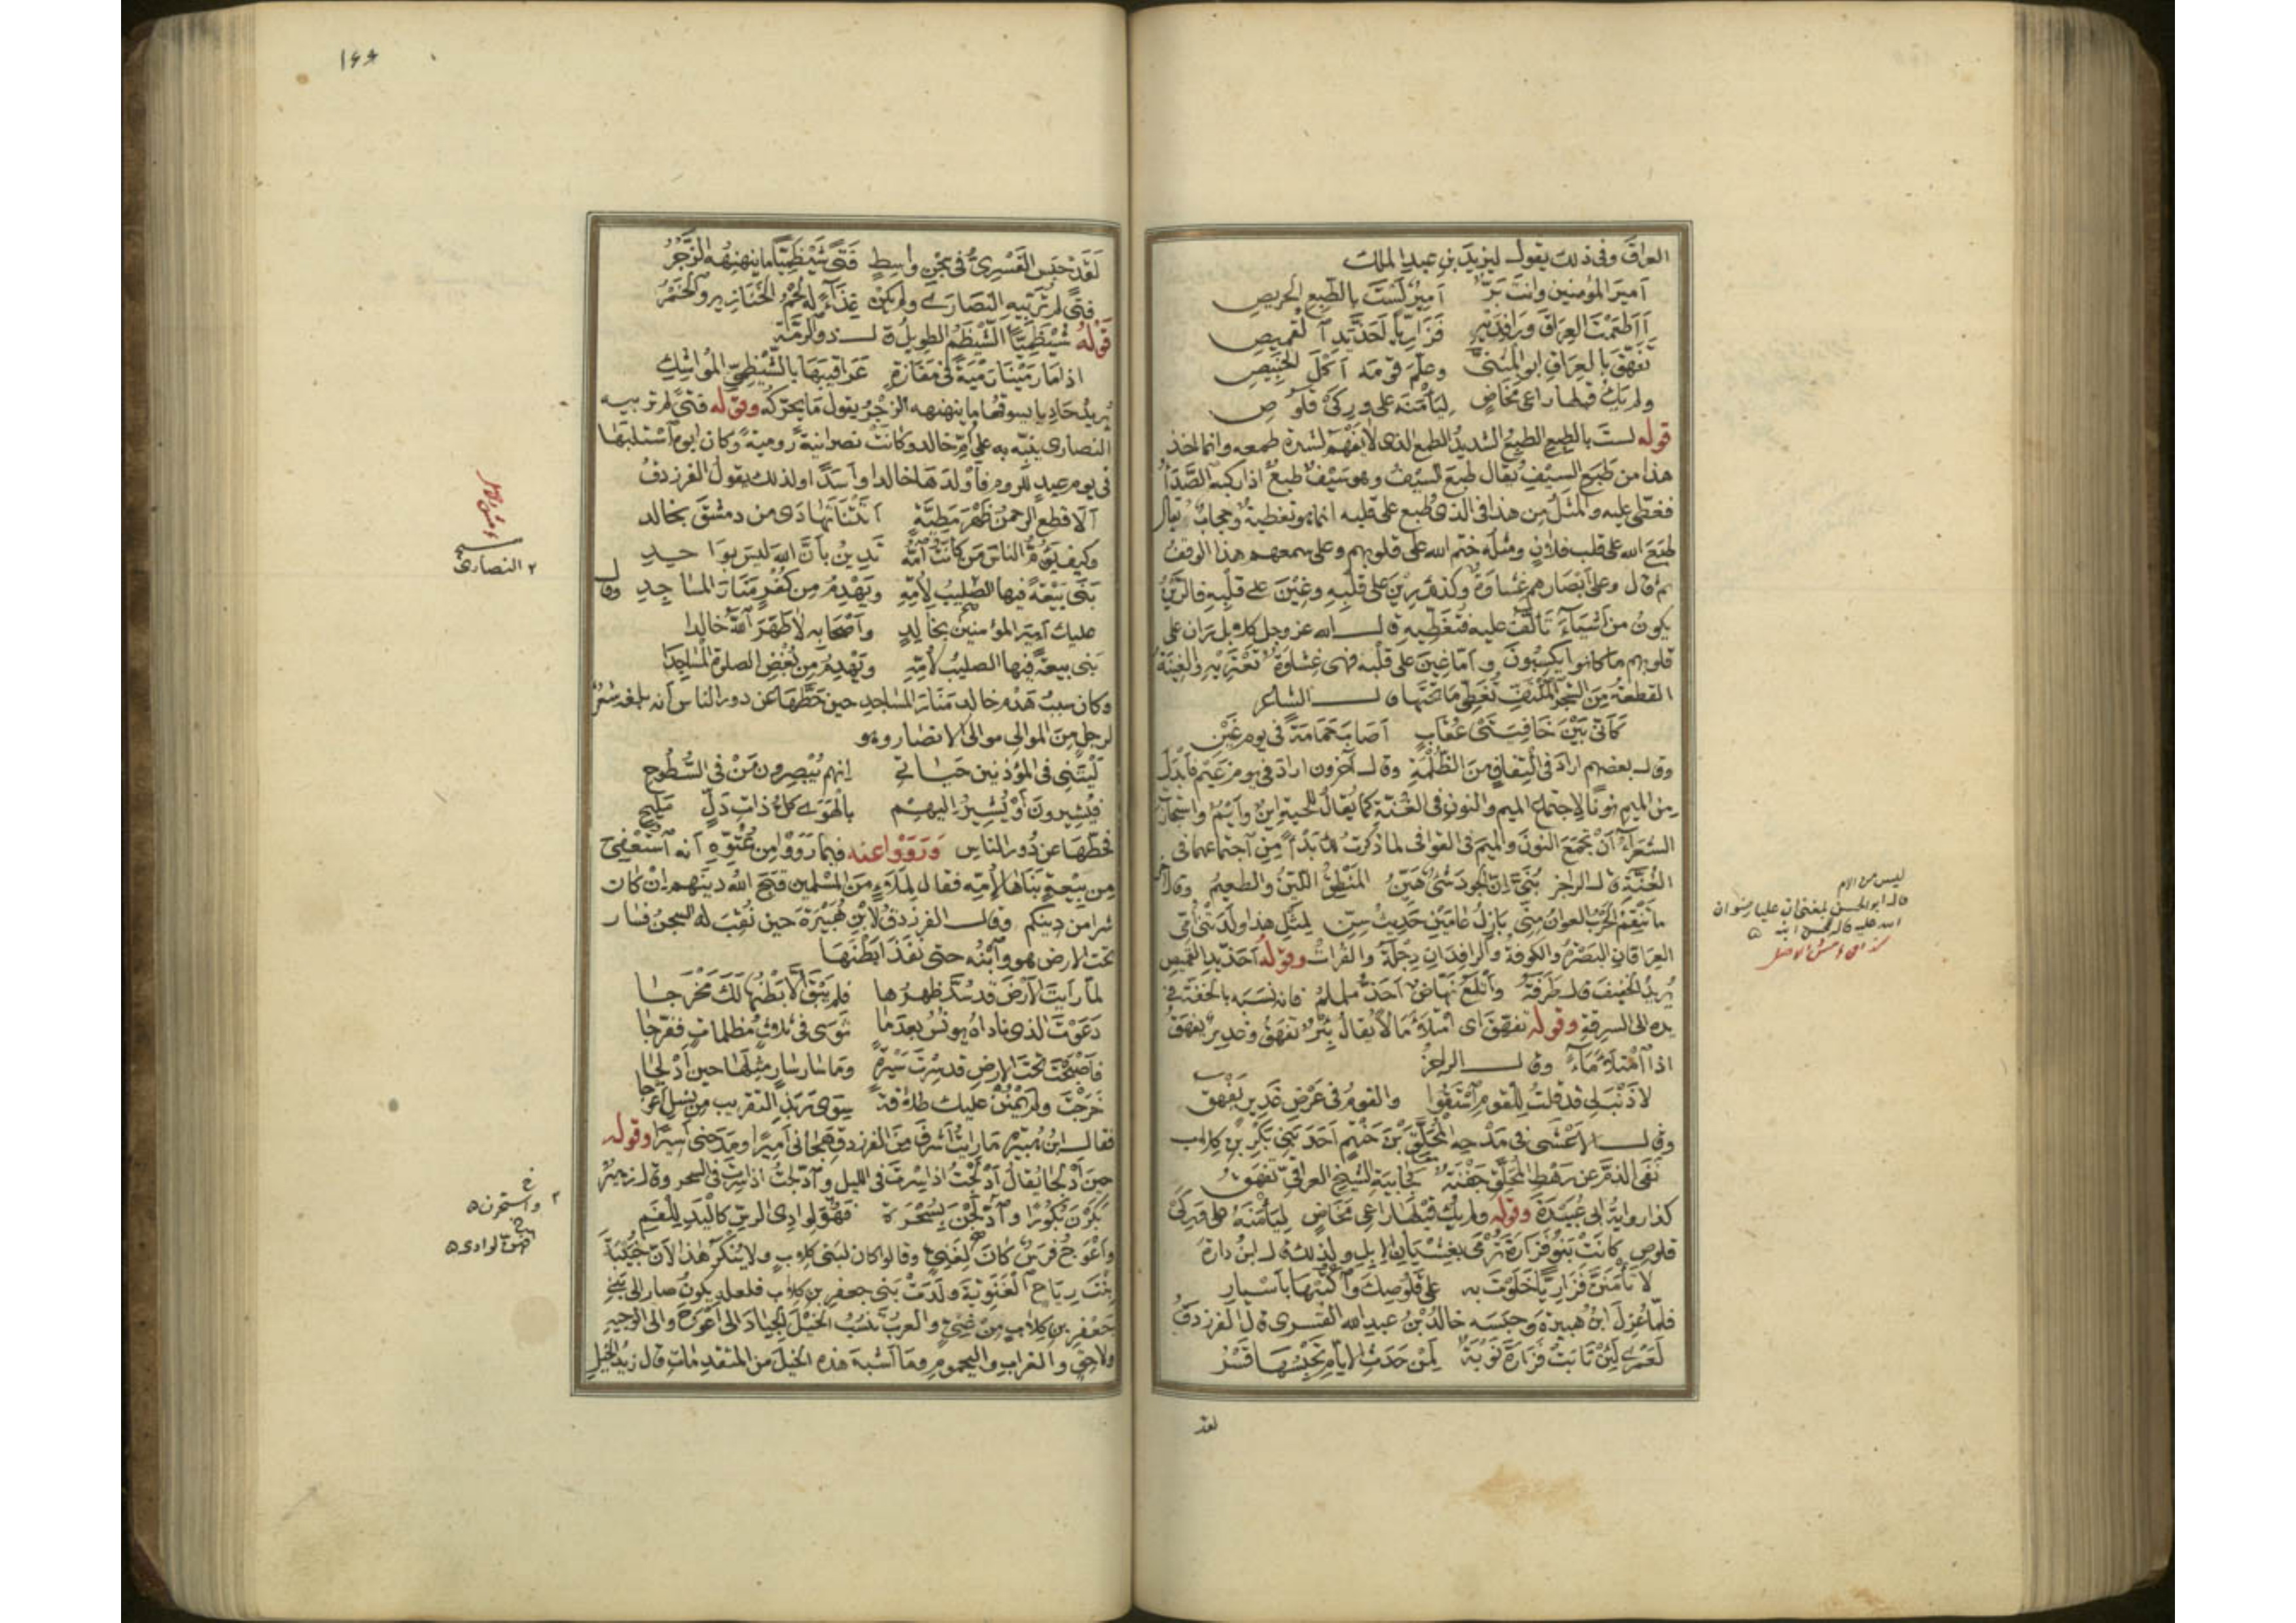 العراق وفى ذلك يقول ليزيد بن عبد الملك
أمير المؤمنين وانت برّ أمين لست بالطبع الحريص
أأطعمت العراق ورافديه فزاريا أحذّ يد القميص
تفهق بالعراق ابو المثنى وعلّم قومه أكل الخبيص
ولم يك قبلها راعى مخاض ليأمنه على وركى قلوص
قوله لست بالطبع الطبع الشديد الطمع الذى لا يفهم لشدة طمعه وانما اخذ
هذا من طبع السيف يقال طبع السيف وهو سيف طبع اذا ركبه الصدأ
فغطى عليه والمثل من هذا فى الذى طبع على قلبه انما هو تغطية وحجاب يقال
طبع الله على قلب فلان ومثله ختم الله على قلوبهم وعلى سمعهم هذا الوقف
ثم قال وعلى أبصارهم غشاوة وكذلك رين على قلبه وغين على قلبه فالرين
يكون من أشياء تألف عليه فتغطيه قال الله عز وجل كلا بل ران على
قلوبهم ما كانوا يكسبون وأما غين على قلبه فهى غشاوة تعتريه والغينة
القطعة من الشجر الملتف تغطى ما تحتها قال الشاعر
كأنى بين خافيتى عقاب أصاب حمامة فى يوم غين
وقال بعضهم اراد فى التفاف من الظلمة وقال آخرون اراد فى يوم غيم فأبدل
من الميم نونا لاجتماع الميم والنون فى الغنة كما يقال للحية اين وأيم واستجازت
الشعراء أن تجمع النون والميم فى القوافى لما ذكرت لك من اجتماعهما فى
الغنة قال الراجز بنىّ ان البر شىء هين المنطق اللين والطعيم وقال آخر
ما تنقم الحرب العوان منى بازل عامين حديث سنى لمثل هذا ولدتنى أمى
العراقان البصرة والكوفة والرافدان دجلة والفرات وقوله أحذ يد القميص
يريد الخفيف قال طرفة وأتلع نهاض أحذ ململم فانما نسبه بالخفة فى
يده الى السرقة وقوله تفهق اى امتلأ مالا يقال بئر تفهق وغدير يفهق
اذا امتلأ ماء وقال الراجز
لا ذنب لى قد قلت للقوم استقوا والقوم فى عرض غدير يفهق
وقال الاعشى فى مدحه المحلق بن خنثم أحد بنى بكر بن كلاب
نفى الذم عن رهط المحلق جفنة كجابية الشيخ العراقى تفهق
كذا رواية ابى عبيدة وقوله ولم يك قبلها راعى مخاض ليأمنه على وركى
قلوص كانت بنو فزارة ترمى بغشيان الابل ولذلك قال ابن دارة
لا تأمنن فزاريا خلوت به على قلوصك واكتبها بأسيار
فلما عزل ابن هبيرة وحبسه خالد بن عبد الله القسرى قال الفرزدق
لعمرى لئن نابت فزارة نوبة لمن حدث الايام تحبسها قسر
لقد
ليس من الام
قال ابو الحسن بلغنى ان عليا رضوان
الله عليه قاله للحسن ابنه
١٤٤
لقد حبس القسرى فى سجن واسط فتى شيظميا ما ينهنهه الزجر
فتى لم تربيه النصارى ولم يكن غذاء له لحم الخنازير والخمر
قوله شيظميا الشيظم الطويل قال ذو الرمة
اذا ما رمينا رمية فى مفازة عراقيبها بالشيظمى المواشك
يريد حاديا يسوقها ما ينهنهه الزجر يقول ما يحركه وقوله فتى لم تربيه
النصارى ينبه به على أم خالد وكانت نصرانية رومية وكان ابوه استلبها
فى يوم عيد للروم فأولدها خالدا وأسدا ولذلك يقول الفرزدق
ألا قطع الرحمن ظهر مطية أتتنا تهادى من دمشق بخالد
وكيف يؤم الناس من كانت أمه تدين بأن الله ليس بواحد
بنى بيعة فيها الصليب لأمه ويهدم من كفر منار المساجد وقال
عليك أمير المؤمنين بخالد وأصحابه لا طهر الله خالدا
بنى بيعة فيها الصليب لأمه ويهدم من بغض الصلوة المساجدا
وكان سبب هدم خالد منار المساجد حين حطها عن دور الناس أنه بلغه شعر
لرجل من الموالى موالى الانصار وهو
ليتنى فى المؤذنين حياتى انهم يبصرون من فى السطوح
فيشيرون أو يشير اليهم بالهوى كل ذات دل مليح
فحطها عن دور الناس ورووا عنه فيما رووا من عتوه أنه استعفى
من بيعة بناها لأمه فقال لملاء من المسلمين قبح الله دينهم ان كان
شرا من دينكم وقال الفرزدق لابن هبيرة حين نقب له السجن فسار
تحت الارض هو وابنه حتى نفذ ابطنها
لما رأيت الأرض قد سد ظهرها فلم يبق الا بطنها لك مخرجا
دعوت الذى ناداه يونس بعدما ثوى فى ثلاث مظلمات ففرجا
فأصبحت تحت الارض قد سرت سيرة وما سار سار مثلها حين أدلجا
خرجت ولم يمنن عليك طلاقة سوى ربذ التقريب من نسل أعوجا
فقال ابن هبيرة ما رايت أشرف من الفرزدق هجانى أميرا ومدحنى أسيرا وقوله
حين أدلجا يقال أدلجت اذا سرت فى الليل وادلجت اذا سرت فى السحر وقال زهير
بكرن بكورا وادلجن بسحرة فهن لوادى الرس كاليد للفم
وأعوج فرس كان لغنى وقالوا كان لبنى كلاب ولا ينكر هذا لأن حبيبة
بنت رياح الغنوية ولدت بنى جعفر بن كلاب فلعله يكون صار الى بنى
جعفر بن كلاب من غنى والعرب تنسب الخيل الجياد الى أعوج والى الوجيه
ولاحق والغراب واليحموم وما أشبه هذه الخيل من المتقدمات قال زيد الخيل
٢ النصارى
٢ واستحرن
فهن لوادى